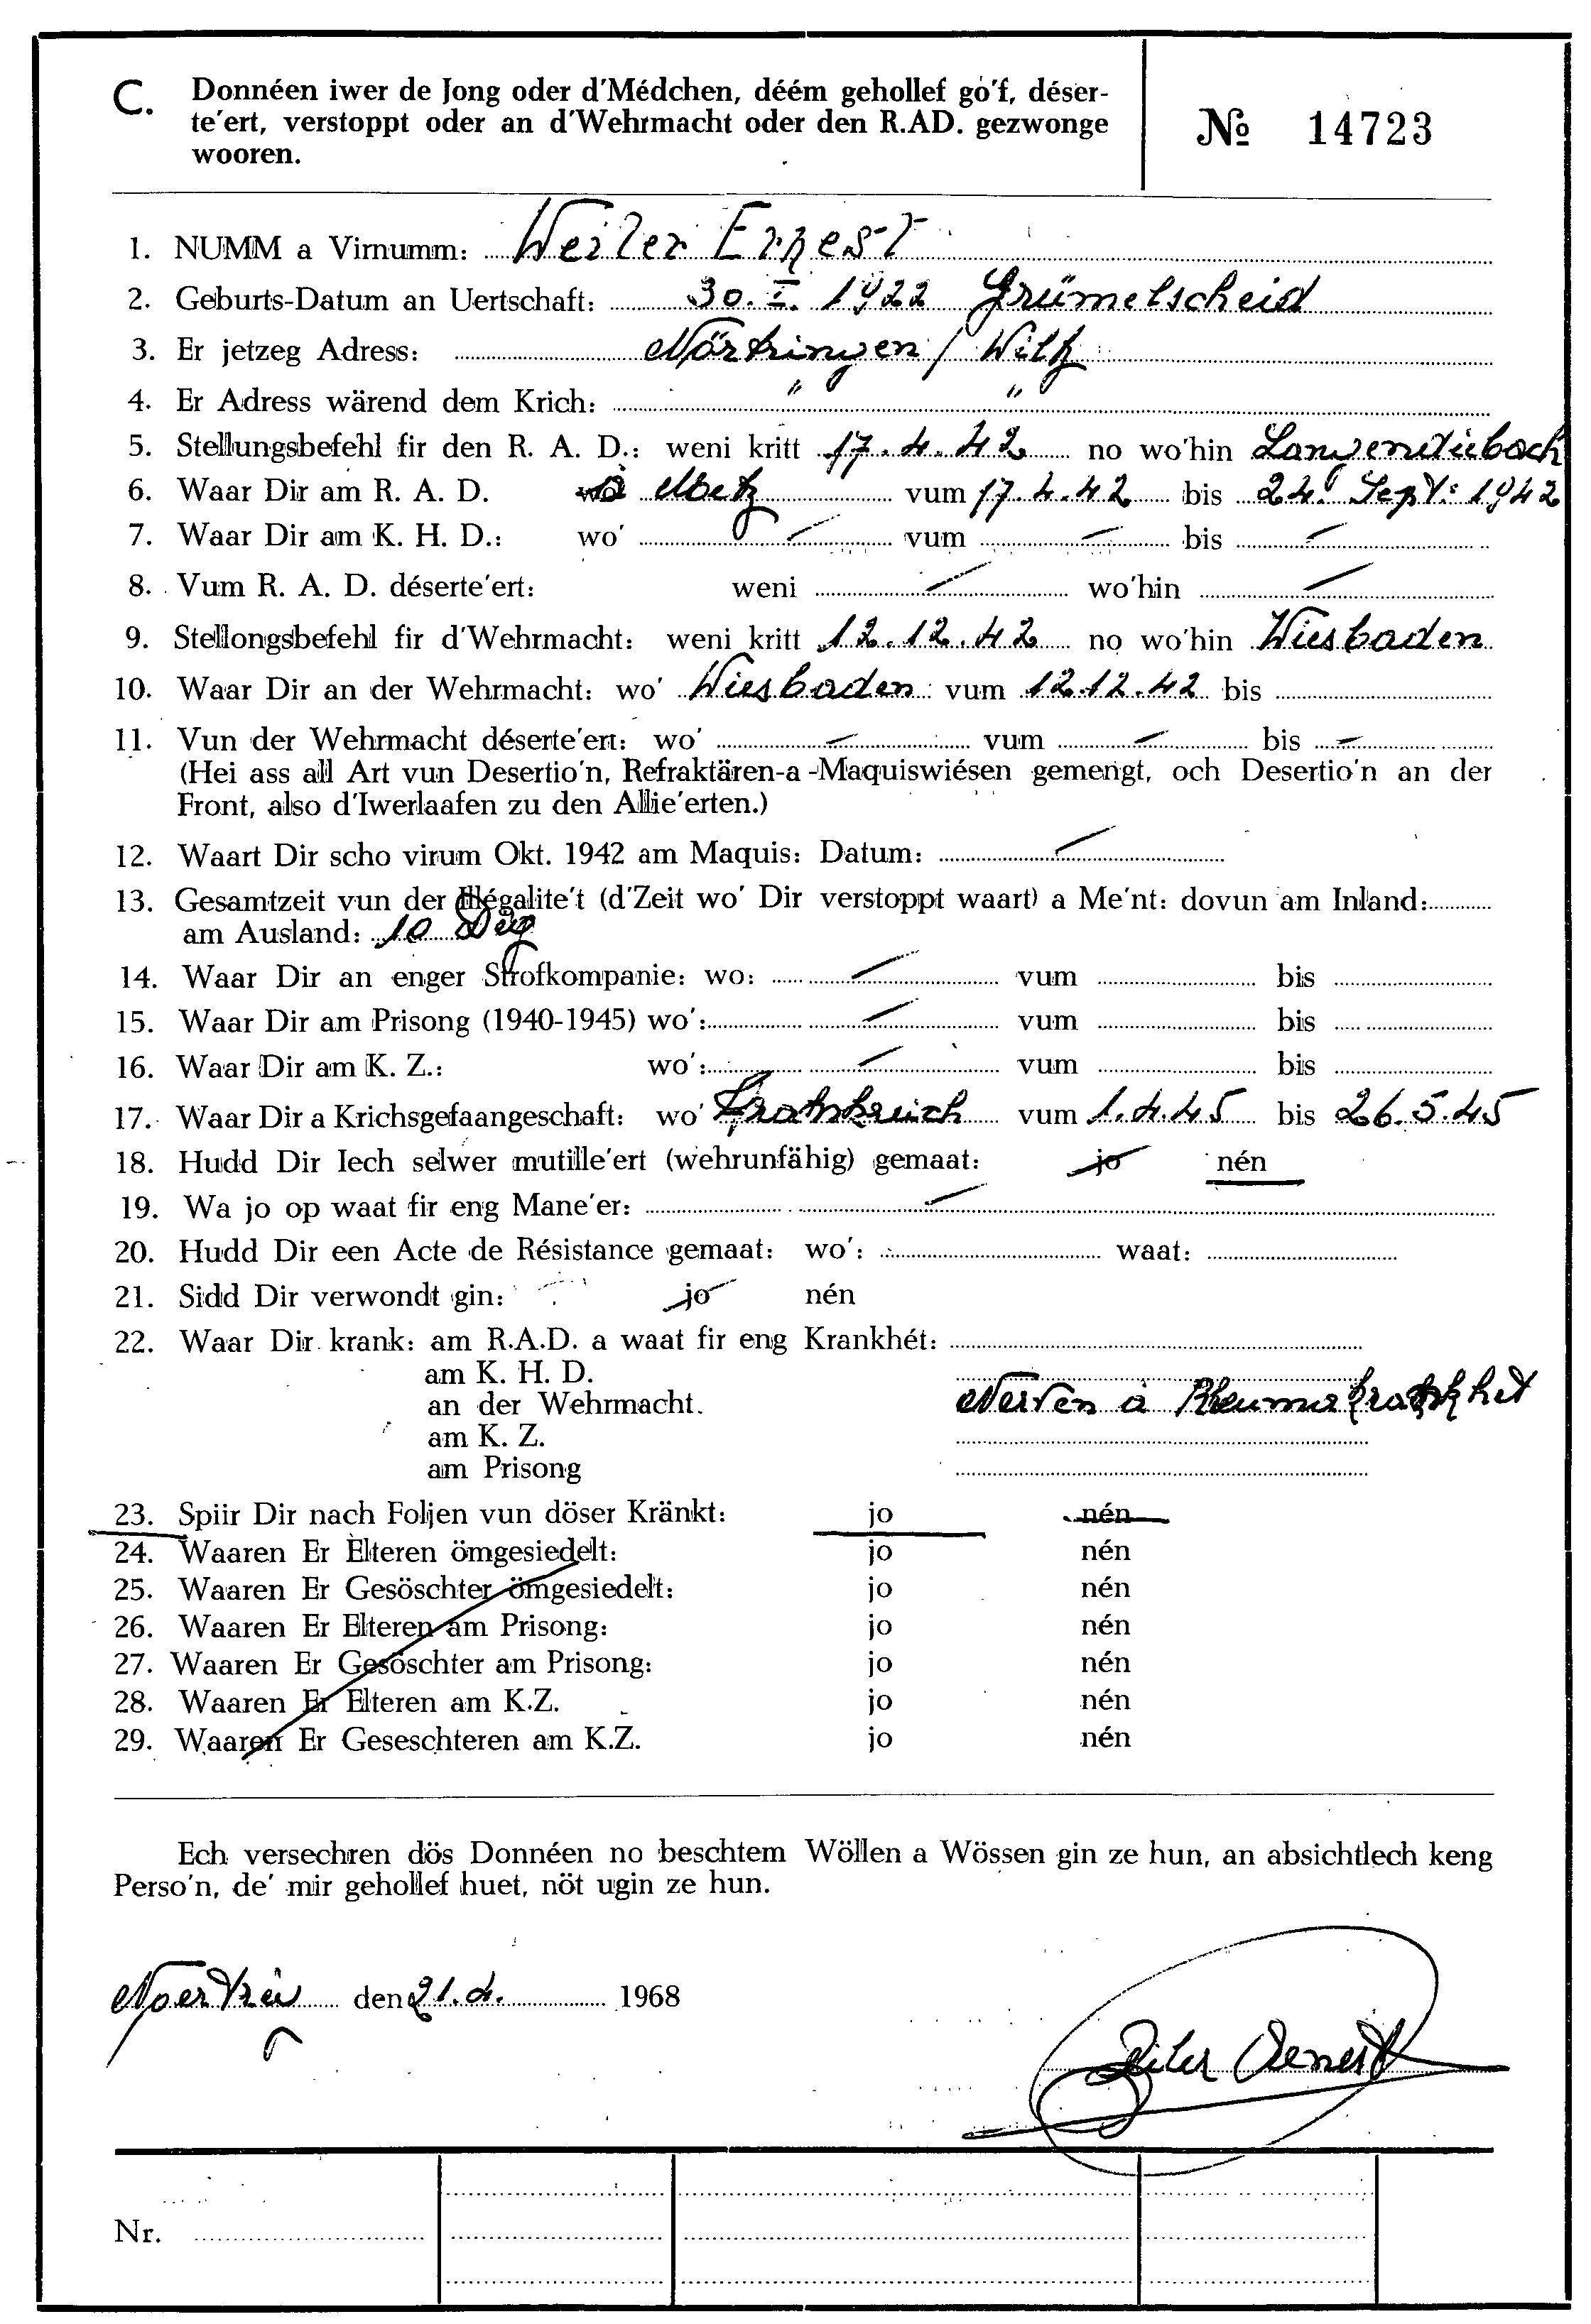 C. Donnéen iwer de Jong oder d'Médchen, déém gehollef go'f, déser-
te'ert, verstoppt oder an d'Wehrmacht oder den R.AD. gezwonge
wooren.
No 14723
1. NUMM a Virnumm: Weiler Ernest
2. Geburts-Datum an Uertschaft: 30. I. 1922 Grümelscheid
3. Er jetzeg Adress: Nörtringen / Wiltz
4. Er Adress wärend dem Krich: " "
5. Stellungsbefehl fir den R. A. D.: weni kritt 17.4.42 no wo'hin Langendiebach
6. Waar Dir am R. A. D. wo' Metz vum 17.4.42 bis 24. Sept: 1942
7. Waar Dir am K. H. D.: wo' / vum / bis /
8. Vum R. A. D. déserte'ert: weni / wo'hin /
9. Stellongsbefehl fir d'Wehrmacht: weni kritt 12.12.42 no wo'hin Wiesbaden
10. Waar Dir an der Wehrmacht: wo' Wiesbaden vum 12.12.42 bis
11. Vun der Wehrmacht déserte'ert: wo' / vum / bis /
(Hei ass all Art vun Desertio'n, Refraktären-a-Maquiswiésen gemengt, och Desertio'n an der
Front, also d'Iwerlaafen zu den Allie'erten.)
12. Waart Dir scho virum Okt. 1942 am Maquis: Datum: /
13. Gesamtzeit vun der Illégalite't (d'Zeit wo' Dir verstoppt waart) a Me'nt: dovun am Inland:
am Ausland: 10 Deg
14. Waar Dir an enger Strofkompanie: wo: / vum bis
15. Waar Dir am Prisong (1940-1945) wo': / vum bis
16. Waar Dir am K. Z.: wo': / vum bis
17. Waar Dir a Krichsgefaangeschaft: wo' Frankreich vum 1.4.45 bis 26.5.45
18. Hudd Dir Iech selwer mutille'ert (wehrunfähig) gemaat: jo nén
19. Wa jo op waat fir eng Mane'er: /
20. Hudd Dir een Acte de Résistance gemaat: wo': waat:
21. Sidd Dir verwondt gin: jo nén
22. Waar Dir krank: am R.A.D. a waat fir eng Krankhét:
am K. H. D.
an der Wehrmacht. Nerven a Rheumakrankhet
am K. Z.
am Prisong
23. Spiir Dir nach Foljen vun döser Kränkt: jo nén
24. Waaren Er Elteren ömgesiedelt: jo nén
25. Waaren Er Gesöschter ömgesiedelt: jo nén
26. Waaren Er Elteren am Prisong: jo nén
27. Waaren Er Gesöschter am Prisong: jo nén
28. Waaren Er Elteren am K.Z. jo nén
29. Waaren Er Geseschteren am K.Z. jo nén
Ech versechren dös Donnéen no beschtem Wöllen a Wössen gin ze hun, an absichtlech keng
Perso'n, de' mir gehollef huet, nöt ugin ze hun.
den 21.4. 1968
Nr.